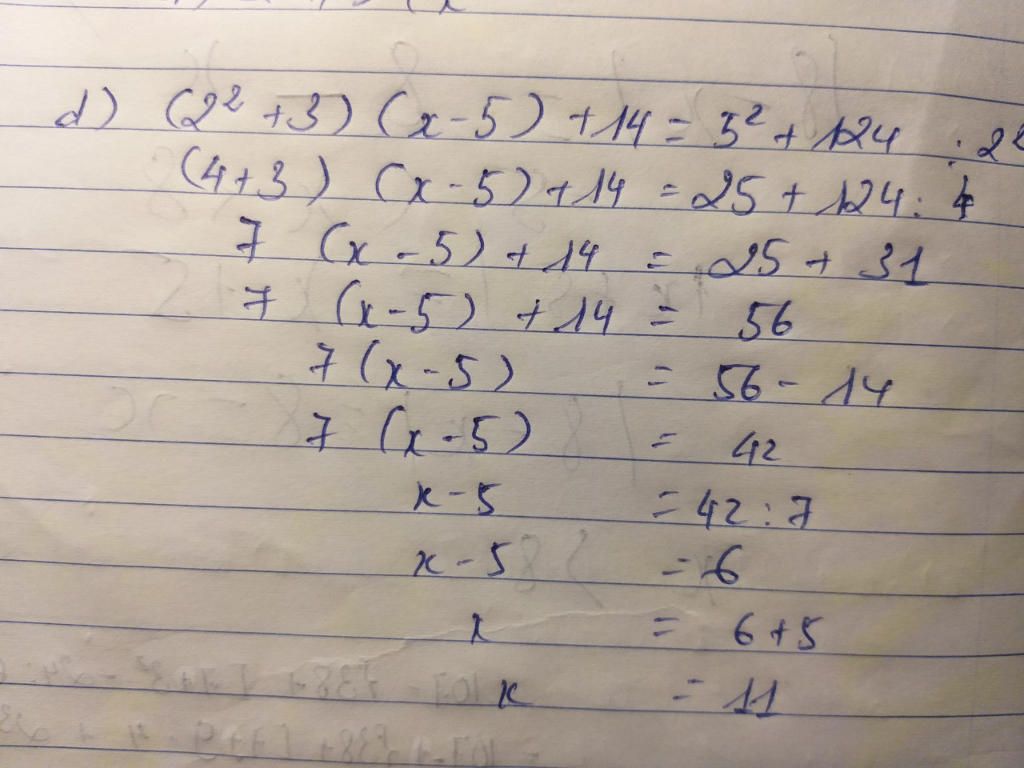 d) (2² + 3) (x - 5) + 14 = 5² + 124 : 2²
(4+3) (x - 5) + 14 = 25 + 124 : 4
7 (x - 5) + 14 = 25 + 31
7 (x - 5) + 14 = 56
7 (x - 5) = 56 - 14
7 (x - 5) = 42
x - 5 = 42 : 7
x - 5 = 6
x = 6 + 5
x = 11